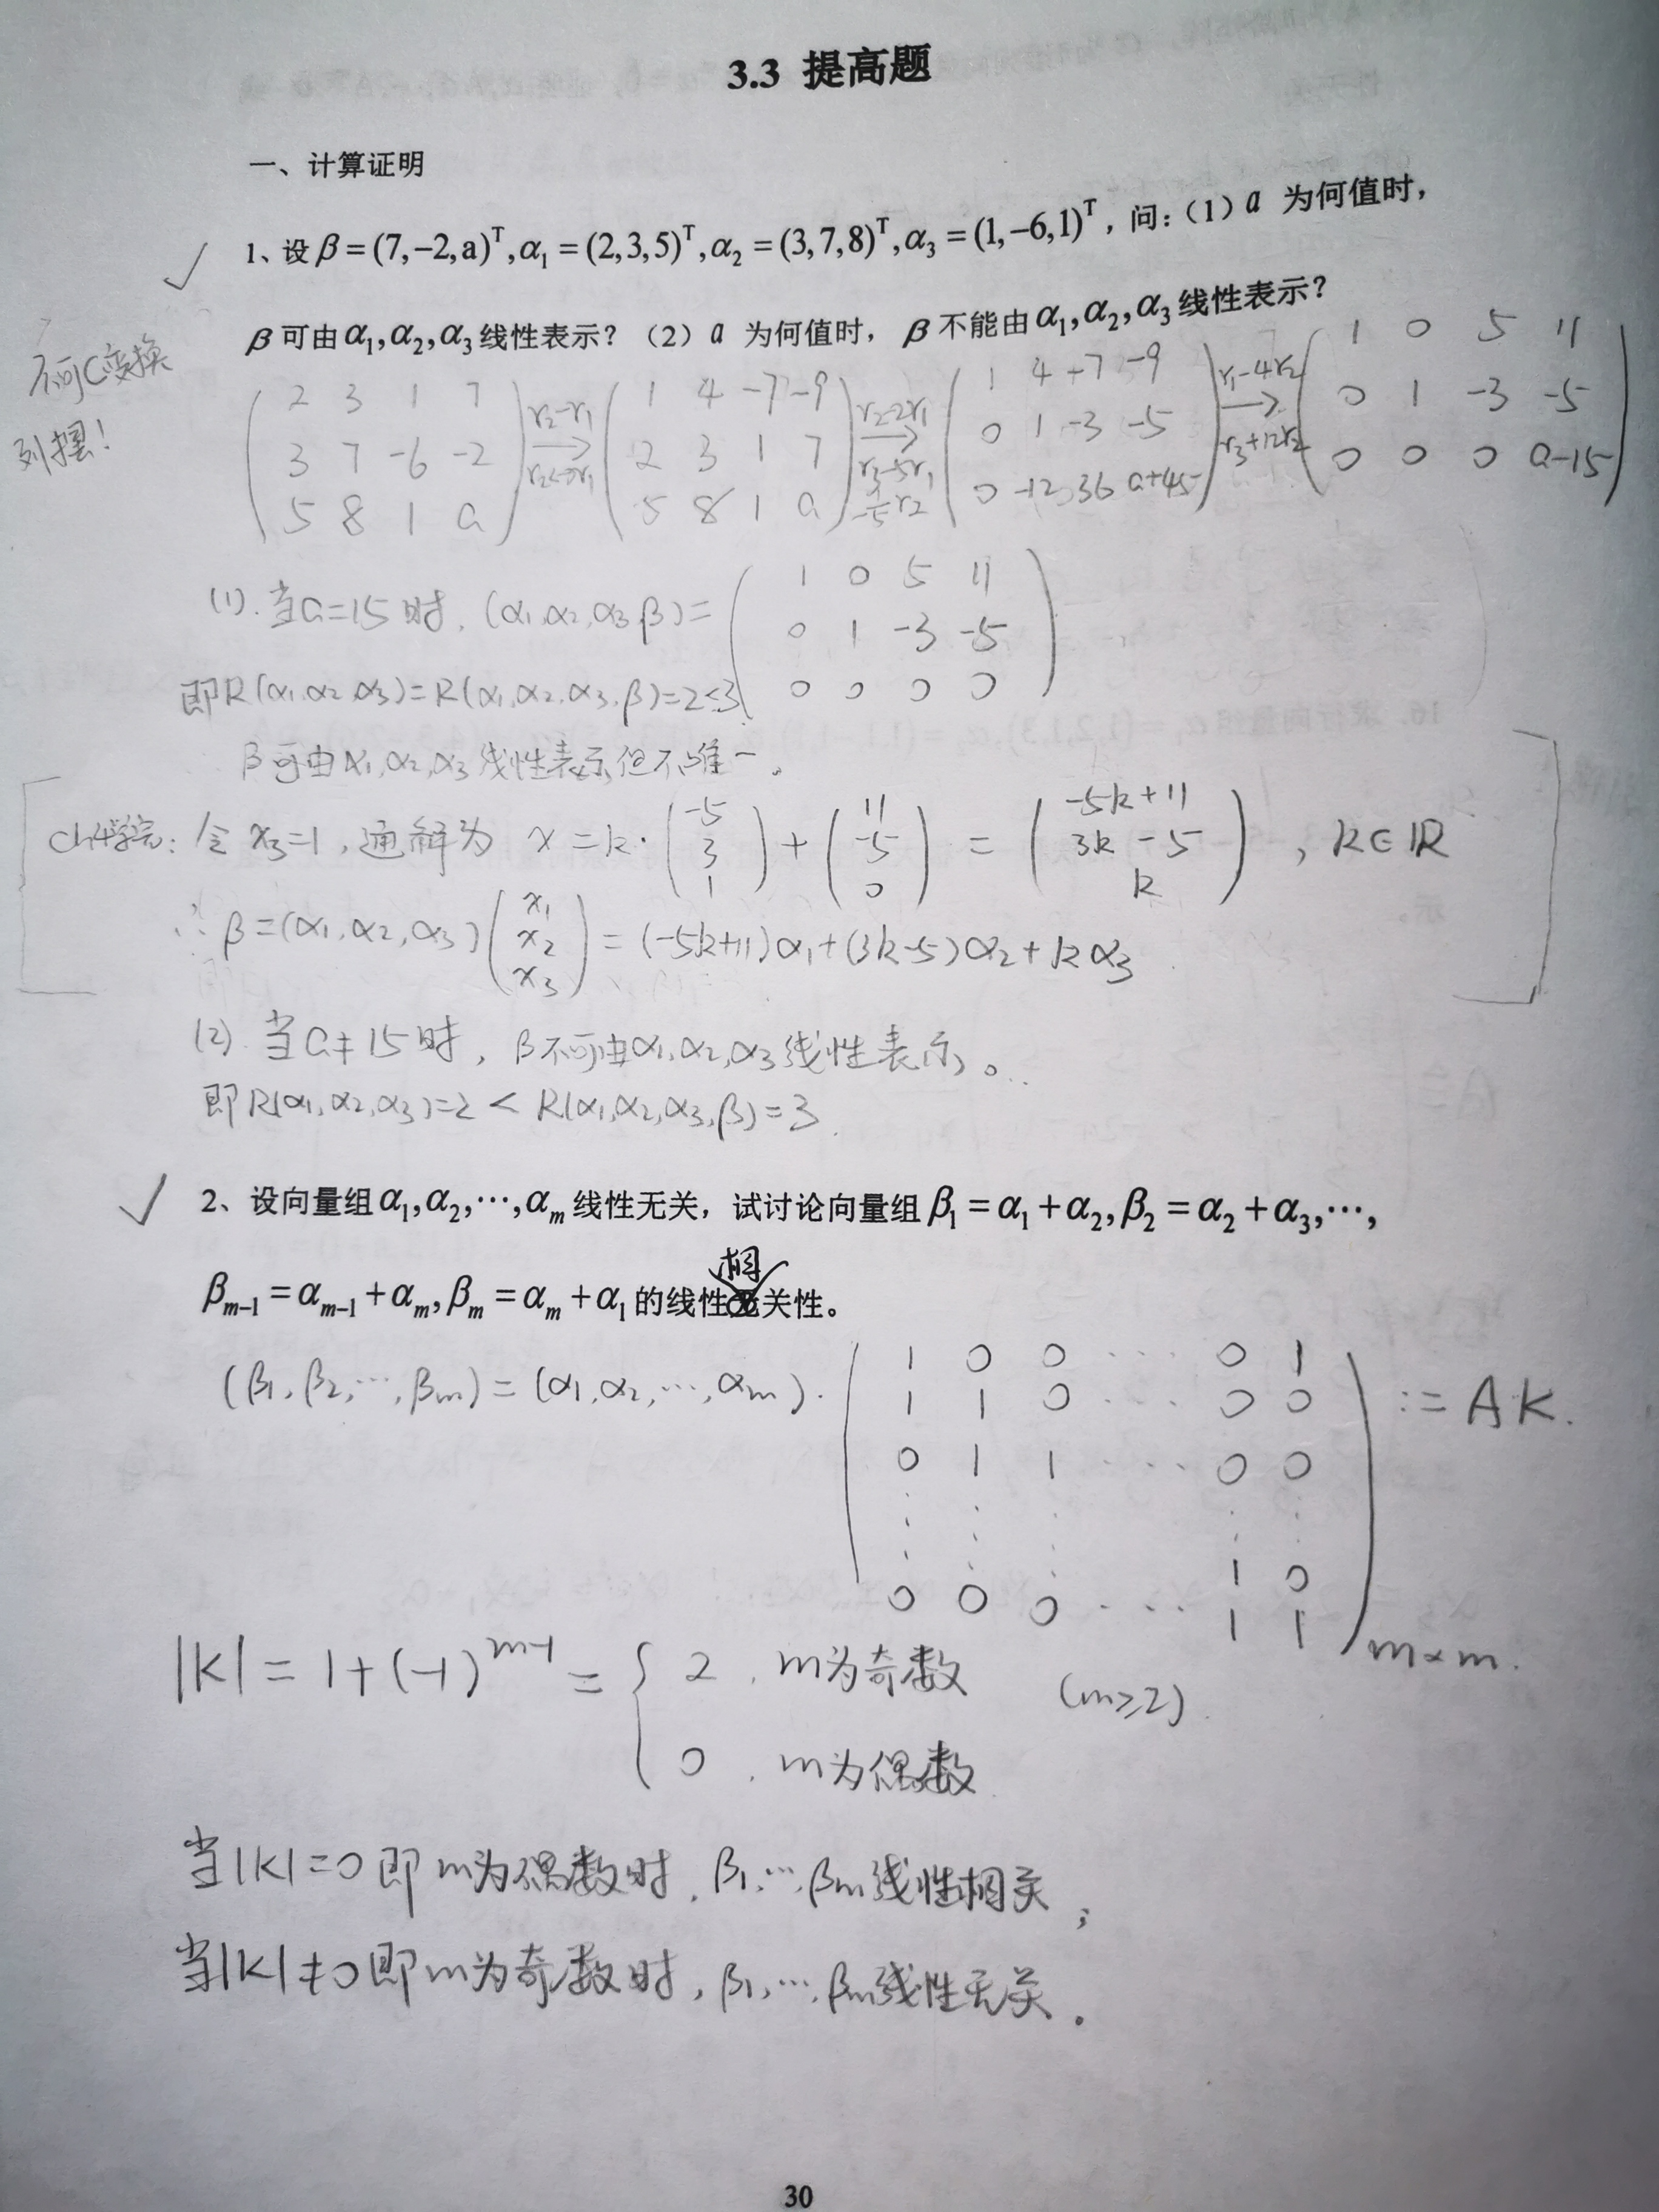 3.3 提高题
一、计算证明
1、设 β=(7,-2,a)ᵀ,α₁=(2,3,5)ᵀ,α₂=(3,7,8)ᵀ,α₃=(1,-6,1)ᵀ，问：（1）a 为何值时，
β可由α₁,α₂,α₃线性表示？（2）a 为何值时，β不能由α₁,α₂,α₃线性表示？
不可C变换
列摆！
2 3 1 7
3 7 -6 -2
5 8 1 a
r₂-r₁
r₂↔r₁
1 4 -7 -9
2 3 1 7
5 8 1 a
r₂-2r₁
r₃-5r₁
1 4 +7 -9
0 1 -3 -5
0 -12 36 a+45
r₁-4r₂
r₃+12r₂
1 0 5 11
0 1 -3 -5
0 0 0 a-15
(1). 当a=15时, (α₁,α₂,α₃,β)=
1 0 5 11
0 1 -3 -5
0 0 0 0
即R(α₁,α₂,α₃)=R(α₁,α₂,α₃,β)=2<3
β可由α₁,α₂,α₃线性表示,但不唯一。
Ch4学完: 令 x₃=1, 通解为 x=k·(-5 3 1)+(11 -5 0)=(-5k+11 3k-5 k), k∈R
∴ β=(α₁,α₂,α₃)(x₁ x₂ x₃)=(-5k+11)α₁+(3k-5)α₂+kα₃
(2). 当a≠15时, β不可由α₁,α₂,α₃线性表示。
即R(α₁,α₂,α₃)=2< R(α₁,α₂,α₃,β)=3.
2、设向量组α₁,α₂,⋯,αₘ线性无关，试讨论向量组β₁=α₁+α₂,β₂=α₂+α₃,⋯,
相
βₘ₋₁=αₘ₋₁+αₘ,βₘ=αₘ+α₁的线性无关性。
(β₁,β₂,⋯,βₘ)=(α₁,α₂,⋯,αₘ)·
1 0 0 ⋯ 0 1
1 1 0 ⋯ 0 0
0 1 1 ⋯ 0 0
1 0
0 0 0 ⋯ 1 1
m×m.
:=AK.
|K|=1+(-1)ᵐ⁻¹={ 2, m为奇数 (m≥2).
0, m为偶数
当|K|=0即m为偶数时, β₁,⋯,βₘ线性相关;
当|K|≠0即m为奇数时, β₁,⋯,βₘ线性无关.
30